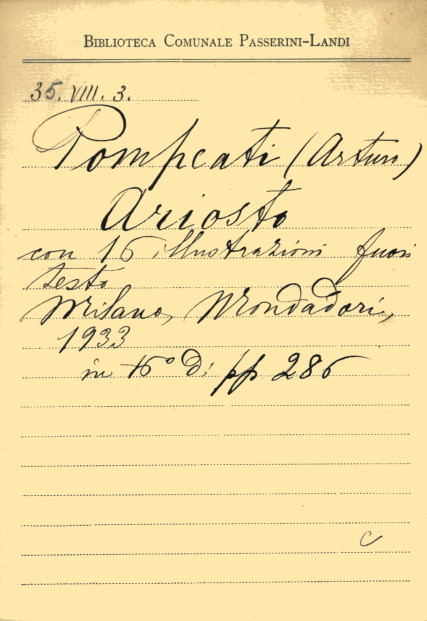 BIBLIOTECA COMUNALE PASSERINI-LANDI
35. VIII. 3.
Pompeati (Arturo)
Ariosto
con 16 illustrazioni fuori
testo
Milano, Mondadori,
1933
in 16° di pp 286
C